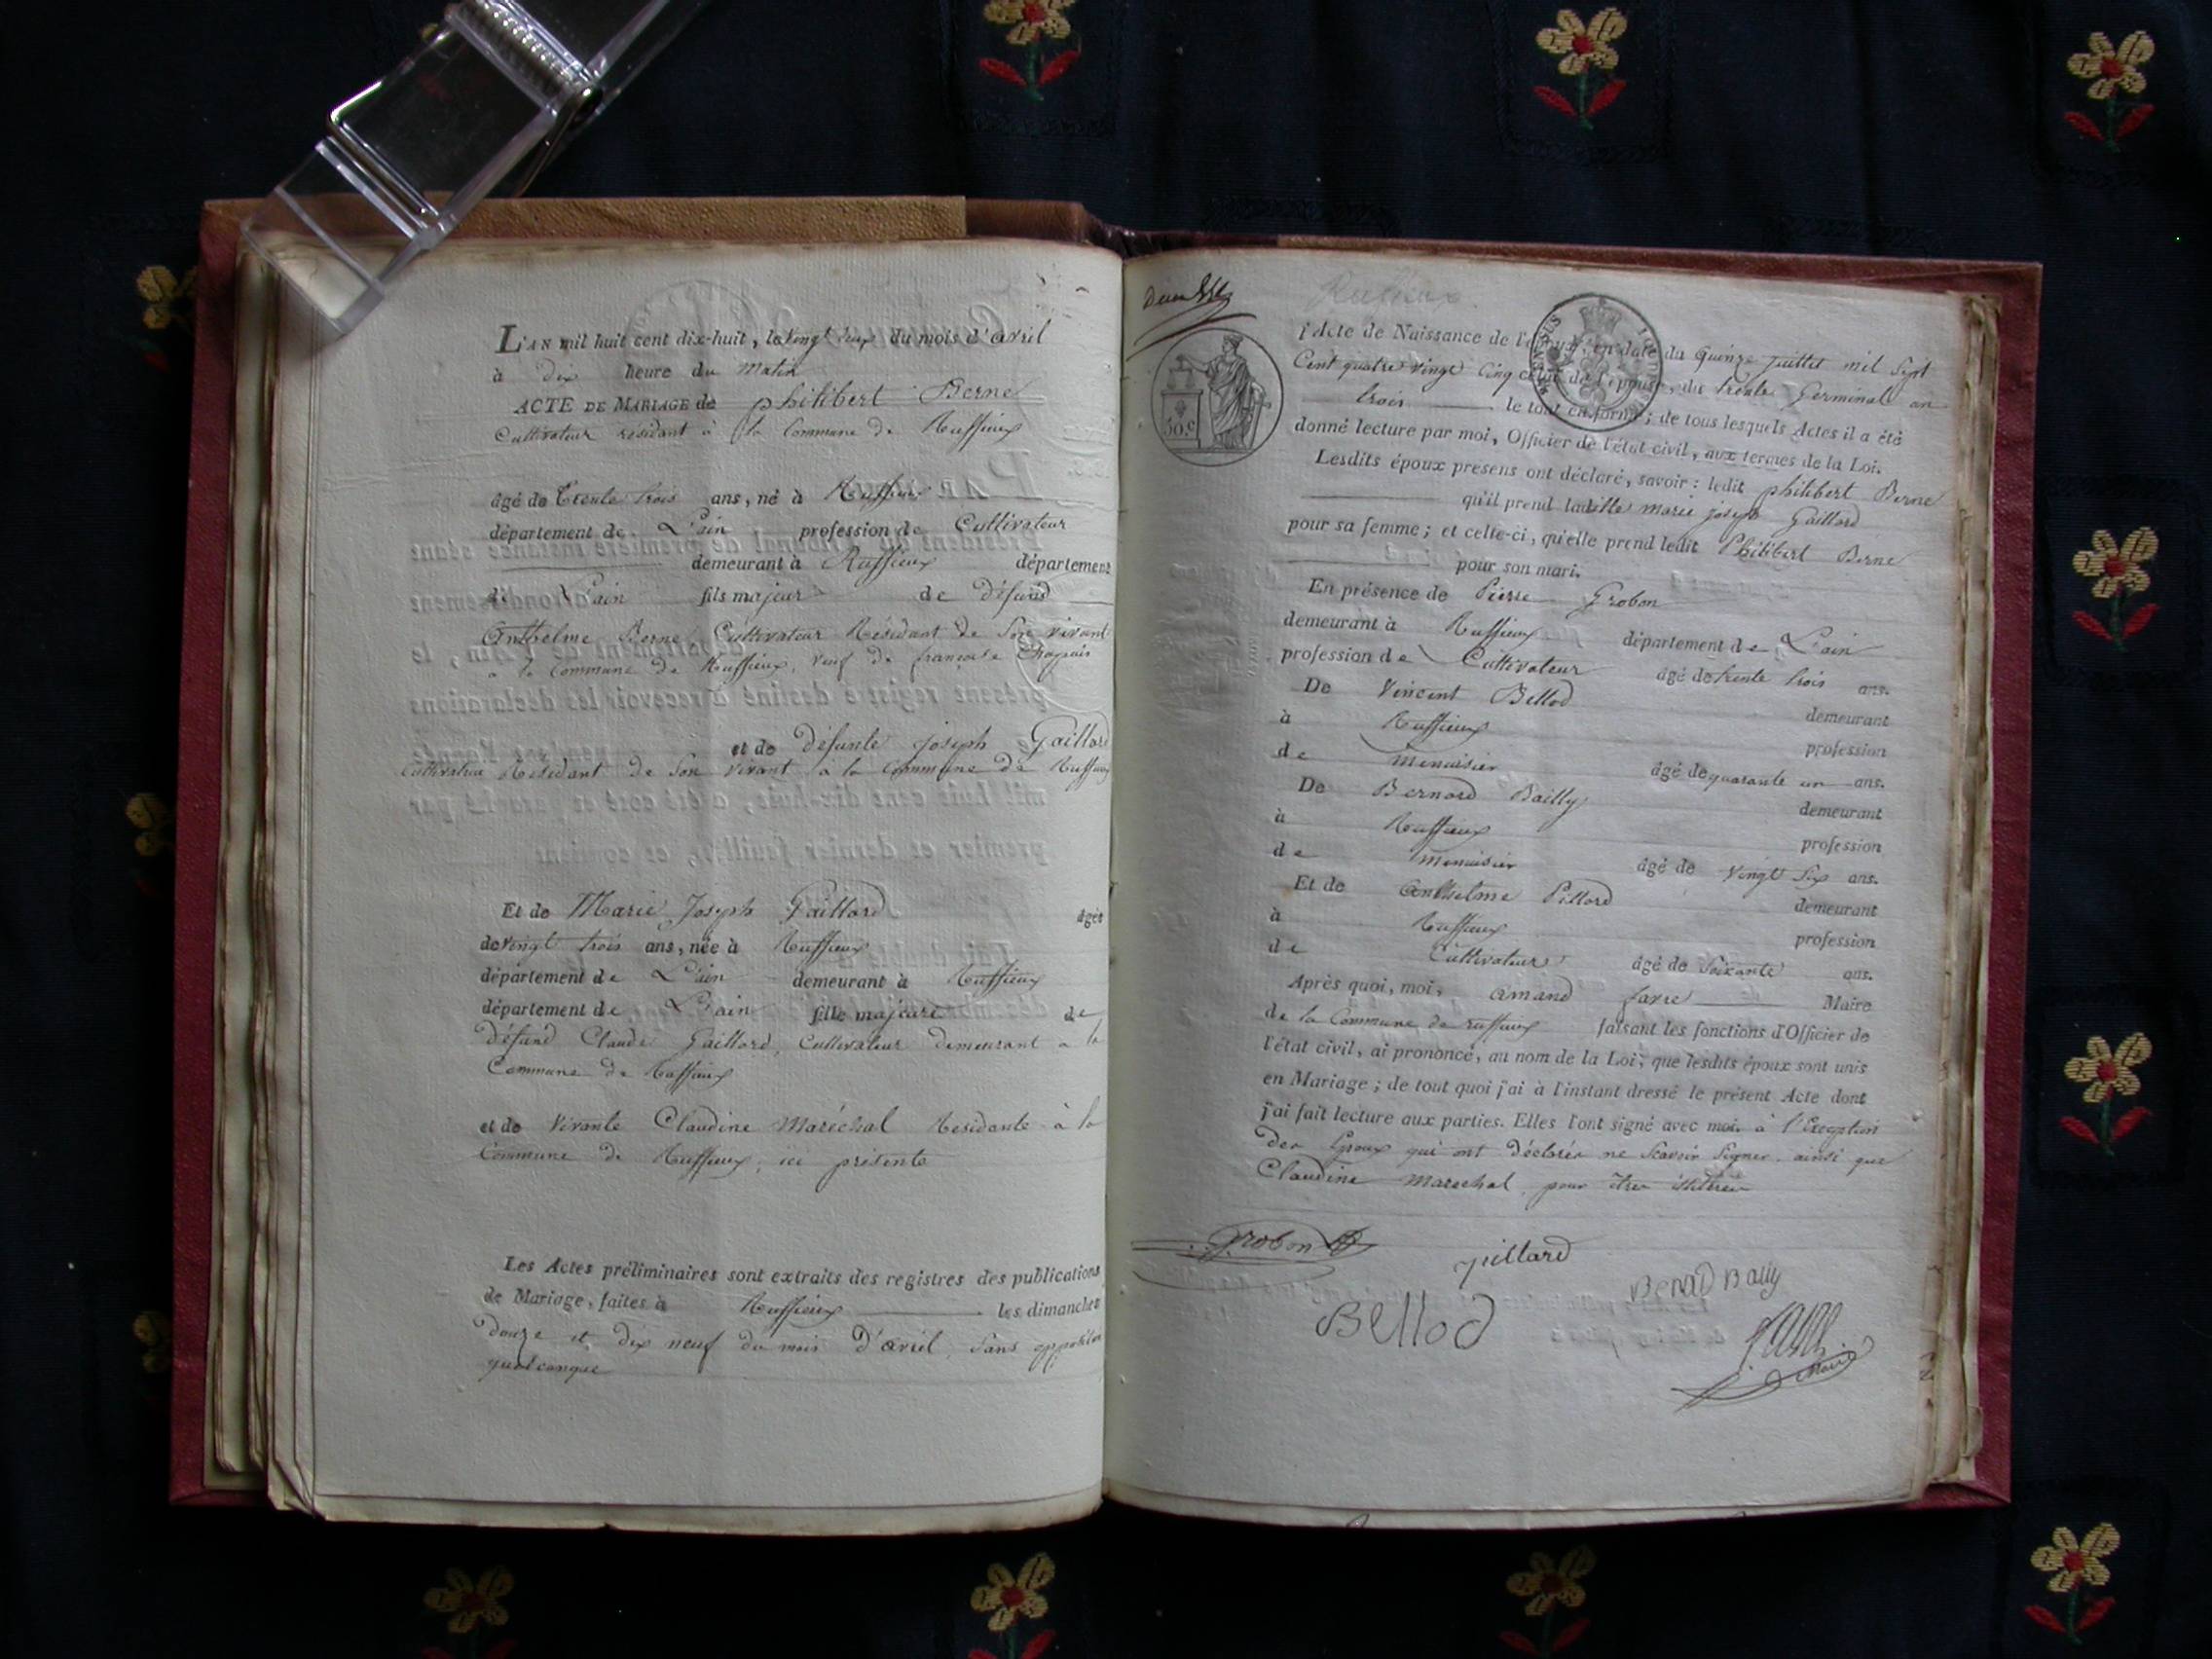 L'AN mil huit cent dix-huit, le vingt deux du mois d'avril
à dix heure du matin
ACTE DE MARIAGE de philibert Berne
Cultivateur residant à la Commune de Ruffieux
âgé de trente trois ans, né à Ruffieux
département de L'ain profession de Cultivateur
demeurant à Ruffieux département
de L'ain fils majeur de défund
Anthelme Berne Cultivateur Résidant de Son vivant
a la Commune de Ruffieux, veuf de françoise
et de défunte joseph Gaillard
Cultivateur Résidant de Son vivant à la Commune de Ruffieux
Et de Marie Joseph Gaillard âgée
de vingt trois ans, née à Ruffieux
département de L'ain demeurant à Ruffieux
département de L'ain fille majeure de
défund Claude Gaillard, Cultivateur demeurant a la
Commune de Ruffieux
et de vivante Claudine Maréchal Residente à la
Commune de Ruffieux, ici présente
Les Actes préliminaires sont extraits des registres des publications
de Mariage, faites à Ruffieux les dimanches
douze et dix neuf du mois d'avril, Sans opposition
quelconque
Ruffieux
30.c
l'Acte de Naissance de l'époux, en date du Quinze juillet mil Sept
Cent quatre vingt Cinq celui de l'épouse, du trente Germinal an
trois le tout en forme; de tous lesquels Actes il a été
donné lecture par moi, Officier de l'état civil, aux termes de la Loi.
Lesdits époux presens ont déclaré, savoir: ledit philibert Berne
qu'il prend ladite marie joseph Gaillard
pour sa femme; et celle-ci, qu'elle prend ledit Philibert Berne
pour son mari.
En présence de Pierre Grobon
demeurant à Ruffieux département de L'ain
profession de Cultivateur âgé de trente trois ans.
De Vincent Bellod demeurant
à Ruffieux profession
de menuisier âgé de quarante un ans.
De Bernard Bailly demeurant
à Ruffieux profession
de menuisier âgé de vingt Six ans.
Et de Anthelme Pillard demeurant
à Ruffieux profession
de Cultivateur âgé de Soixante ans.
Après quoi, moi, amand favre Maire
de la Commune de ruffieux faisant les fonctions d'Officier de
l'état civil, ai prononcé, au nom de la Loi, que lesdits époux sont unis
en Mariage; de tout quoi j'ai à l'instant dressé le présent Acte dont
j'ai fait lecture aux parties. Elles l'ont signé avec moi. à l'Exception
des Epoux qui ont déclarés ne Scavoir Signer. ainsi que
Claudine marechal, pour être
Grobon
pillard
Benad Baily
Bellod
Maire